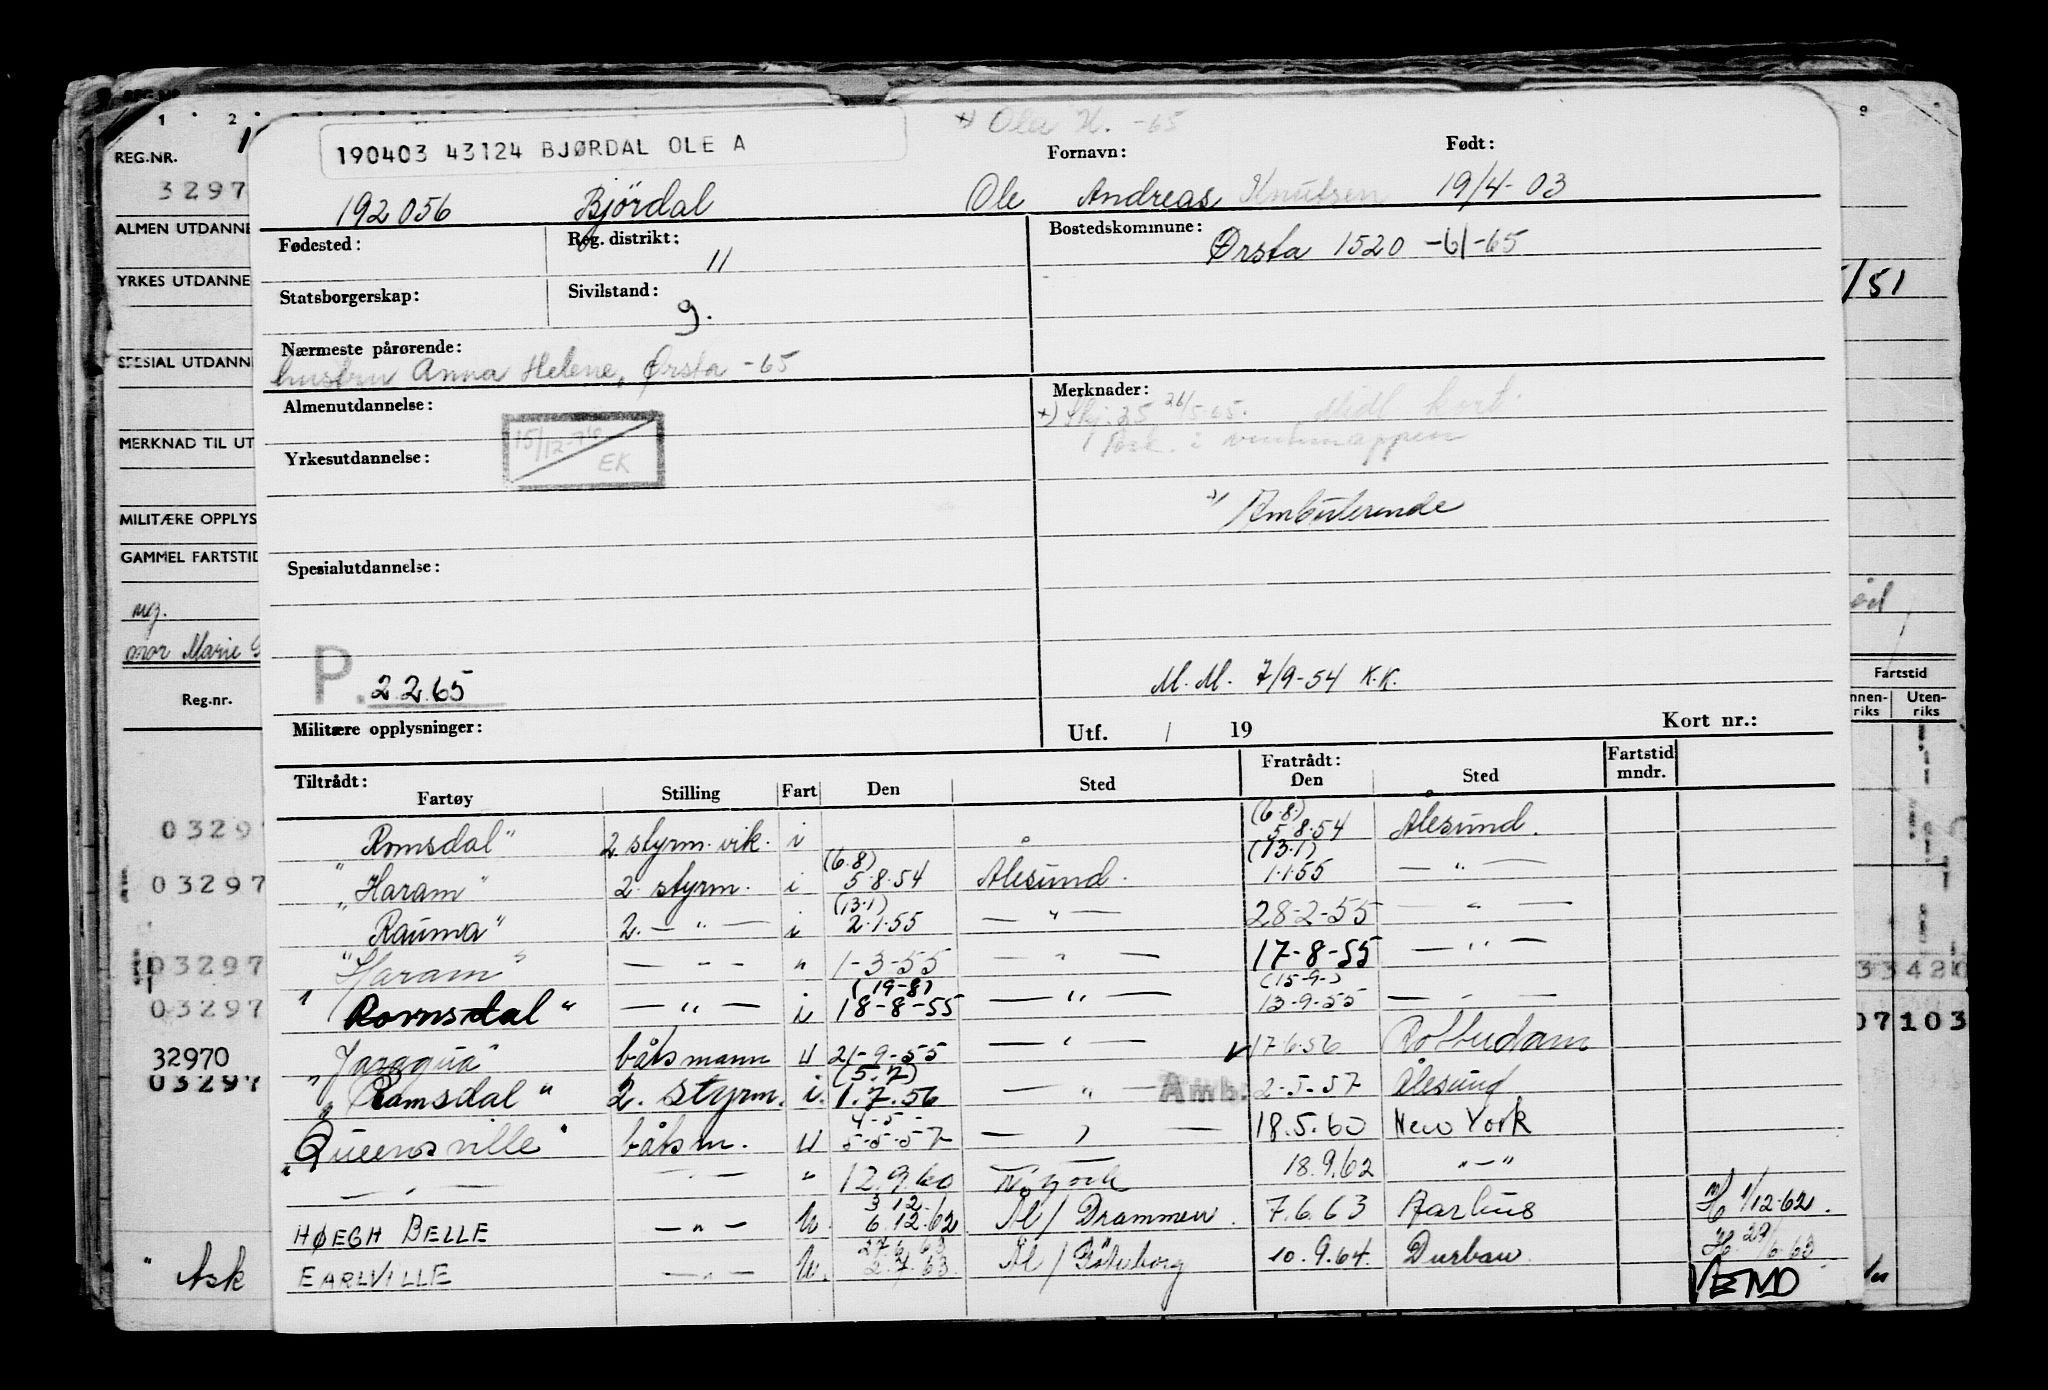 REG.NR.
3297
ALMEN UTDANNE
YRKES UTDANNE
SPESIAL UTDANN
MERKNAD TIL UT
MILITÆRE OPPLYS
GAMMEL FARTSTID
ug.
mor Marie
Reg.nr.
03297
03297
03297
03297
32970
03297
" Ask
190403 43124 BJØRDAL OLE A
x) Ola K. -65
Fornavn: Født:
192056 Bjørdal Ole Andreas Knutsen 19/4-03
Fødested: Reg. distrikt: 11 Bostedskommune: Ørsta 1520 -61-65
Statsborgerskap: Sivilstand: g.
Nærmeste pårørende:
hustru Anna Helene, Ørsta -65
Almenutdannelse: Merknader:
x) Skj. 25 26/5-65. Midl kort.
i ventemappen
15/12-76 EK
Yrkesutdannelse:
Ambulerende
Spesialutdannelse:
P. 2.2.65
M.M. 7/9-54 K.K.
Militære opplysninger: Utf. / 19 Kort nr.:
Tiltrådt: Fratrådt: Fartstid mndr.
Fartøy Stilling Fart Den Sted Den Sted
Romsdal" 2 styrm. vik. i (6.8.) 5.8.54 Ålesund.
"Haram" 2. styrm. i (6.8) 5.8.54 Ålesund. (13.1) 1.1.55 — " —
Rauma" 2. — " — i (13.1) 2.1.55 — " — 28-2-55 — " —
"Haram" — " — " 1-3-55 — " — 17-8-55 — " —
" Romsdal " — " — i (19-8) 18-8-55 — " — (15-9-) 13-9-55 — " —
"Jaragua" båtsmann u 21-9-55 — " — 17.6.56 Rotterdam
" Romsdal " 2. styrm. i. (5.7) 1.7.56 — " — Amb. 2-5-57 Ålesund
"Queensville" båtsm. u 4-5- 5-5-57 — " — 18.5.60 New York
— " — — " — " 12.9.60 N. York 18.9.62 " — "
HØEGH BELLE — " — U. 3 12. 6.12.62 Ål / Drammen. 7.6.63 Aarhus H 1/12-62.
EARLVILLE — " — U. 27.6.63 2.7.63 Ål / Göteborg 10.9.64. Durban. H. 29/6-63
VEND
/51
Fartstid
nnen-riks Uten-riks
33420
07103